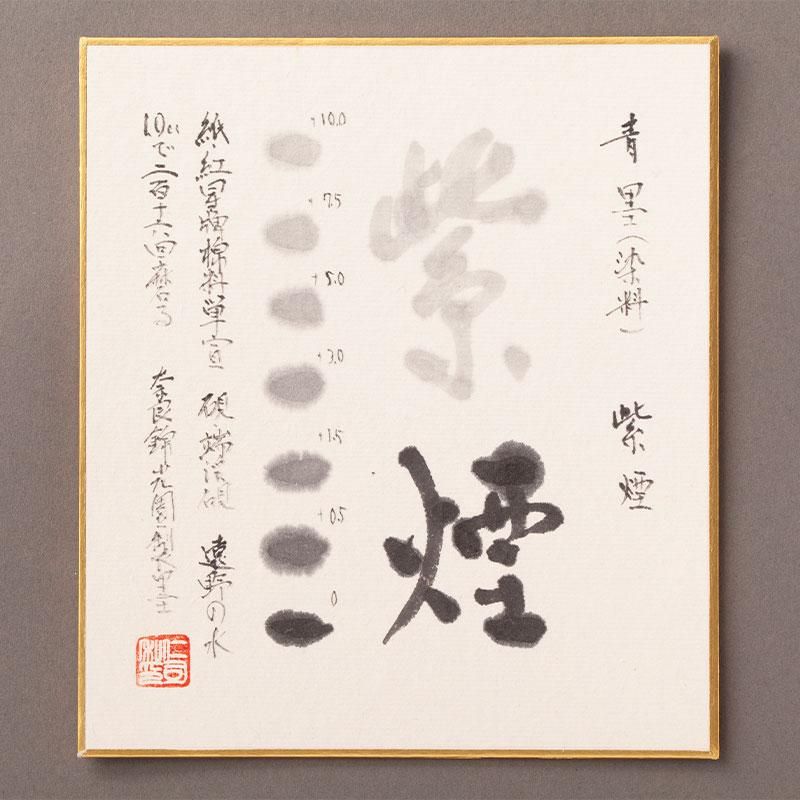 青墨(染料) 紫煙
紫煙
+10.0
+7.5
+5.0
+3.0
+1.5
+0.5
0
紙・紅星牌棉料単宣 硯・端渓硯 遠野の水
10ccで二百十六回磨る 奈良錦光園製墨士